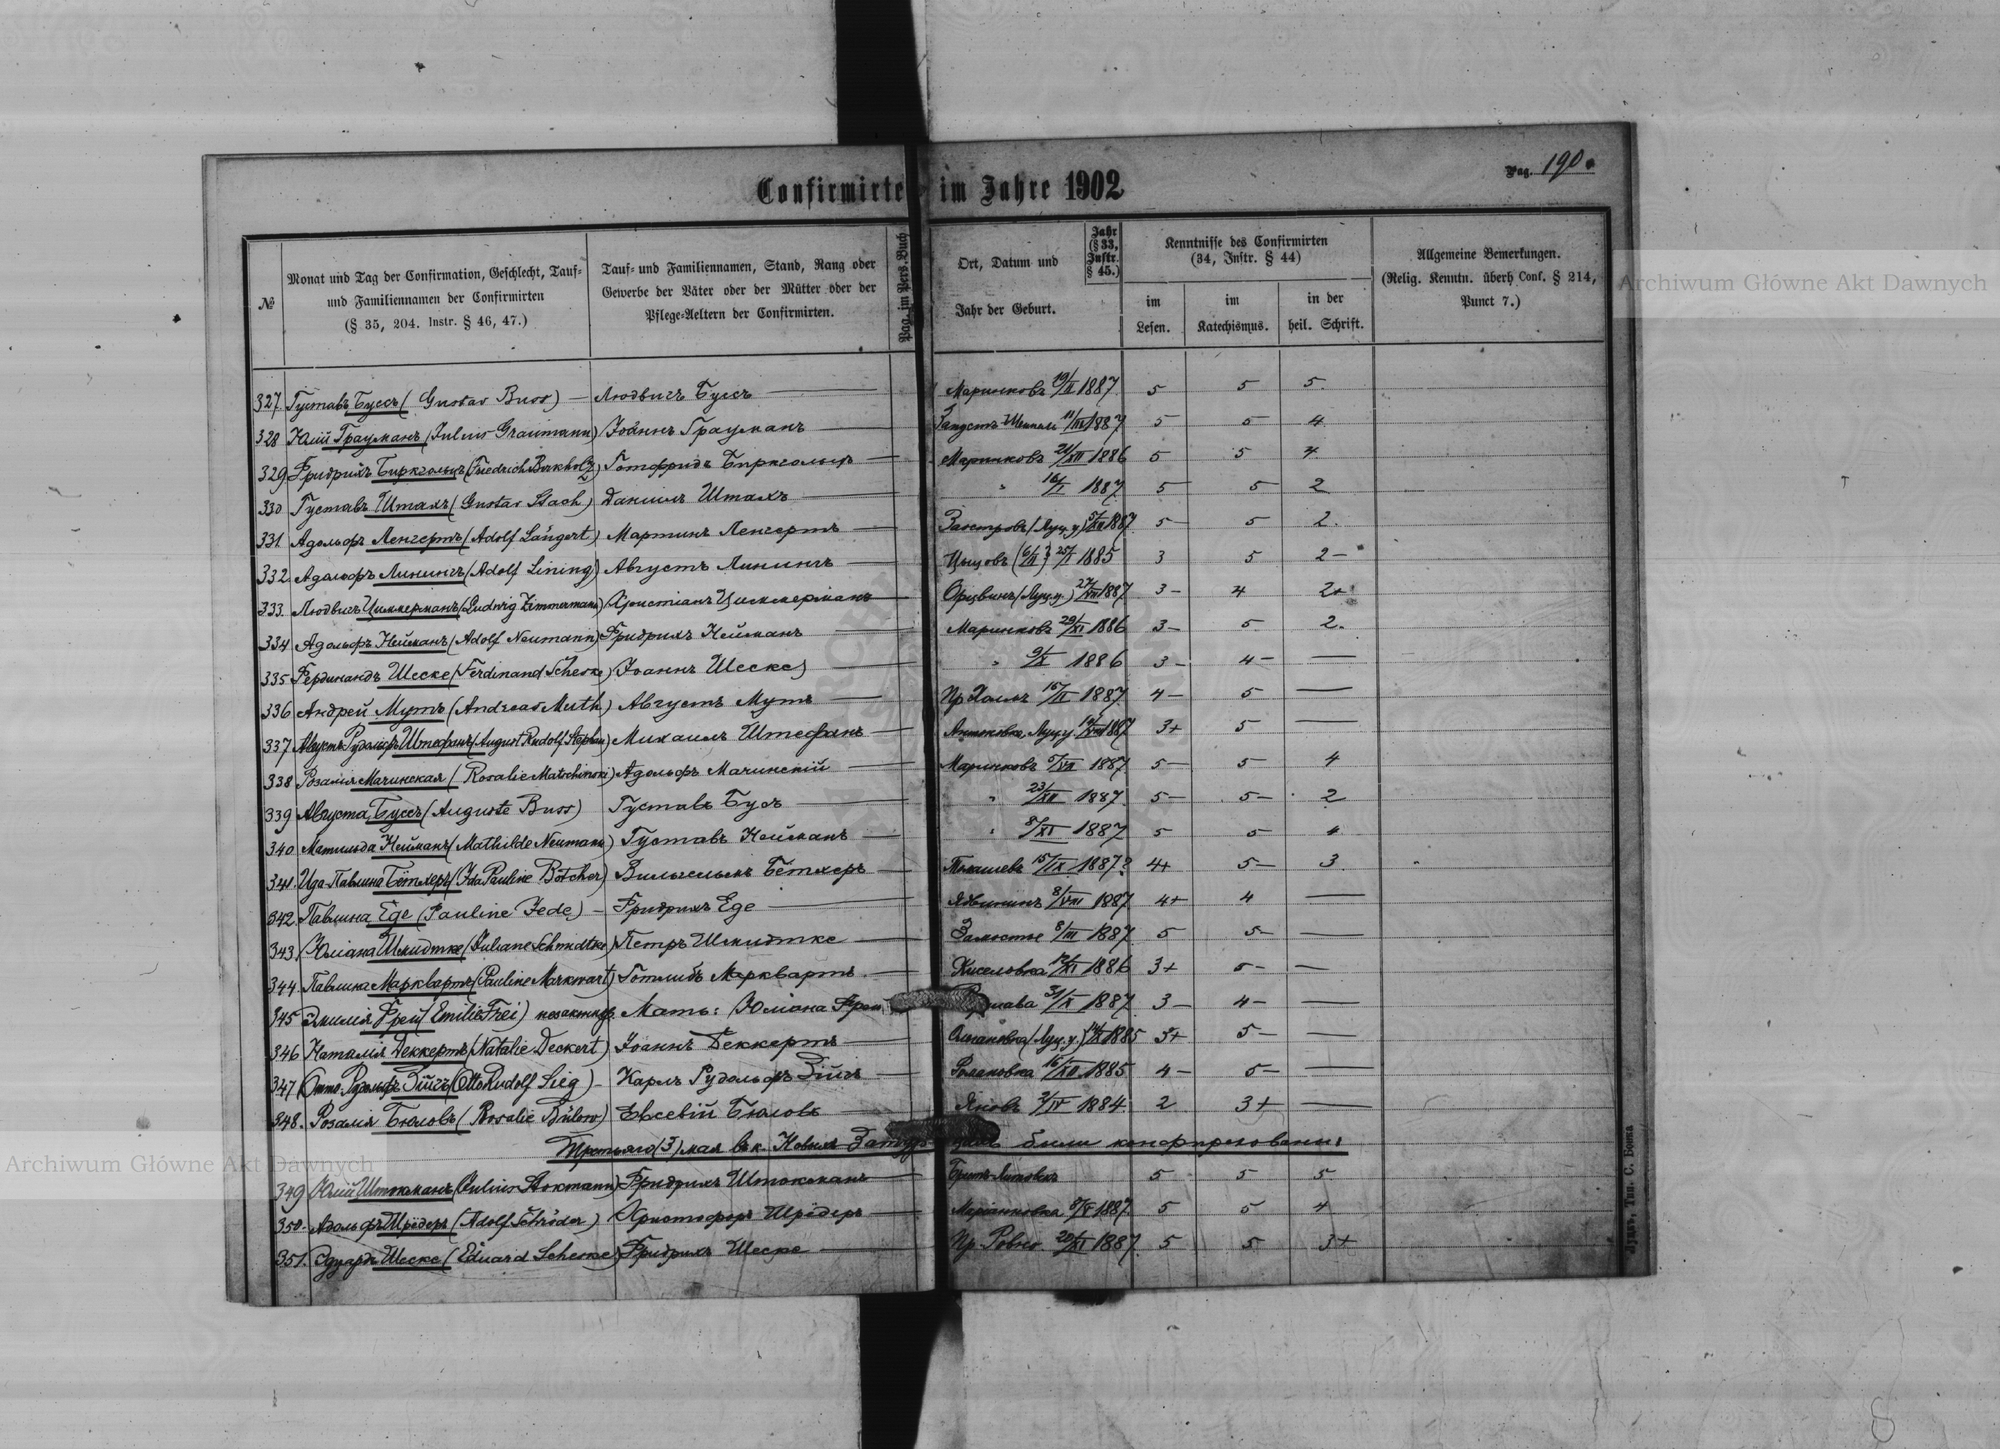 Pag. 190.
Confirmirte im Jahre 1902
№
Monat und Tag der Confirmation, Geschlecht, Tauf-
und Familiennamen der Confirmirten
(§ 35, 204. Instr. § 46, 47.)
Tauf- und Familiennamen, Stand, Rang oder
Gewerbe der Väter oder der Mütter oder der
Pflege-Aeltern der Confirmirten.
Pag. im Pers. Buch
Ort, Datum und
Jahr der Geburt.
Jahr
(§ 33,
Instr.
§ 45.)
Kenntnisse des Confirmirten
(34, Instr. § 44)
im
Lesen.
im
Katechismus.
in der
heil. Schrift.
Allgemeine Bemerkungen.
(Relig. Kenntn. überh Conf. § 214,
Punct 7.)
327. Густавъ Буссъ (Gustav Buss) — Людвигъ Буссъ — Маринковъ 19/II 1887 5 5 5
328 Юлій Грауманъ (Julius Graumann) Іоаннъ Грауманъ — 11/III 1887 5 5 4
329 Фридрихъ Биркгольцъ (Friedrich Berkholz) Готфридъ Биркгольцъ — Маринковъ 21/XII 1886 5 5 4
330 Густавъ Штахъ (Gustav Stach) Данiилъ Штахъ — " 16/I 1887 5 5 2
331. Адольфъ Ленгертъ (Adolf Längert) Мартинъ Ленгертъ — (Луц. у.) 1887 5 5 2.
332. Адольфъ Линингъ (Adolf Lining) Августъ Линингъ — Цыцовъ (6/II?) 25/I 1885 3 5 2 —
333. Людвигъ Циммерманъ (Ludwig Zimmermann) Христіанъ Циммерманъ (Луц. у.) 27/VII 1887 3 — 4 2+
334 Адольфъ Нейманъ (Adolf Neumann) Фридрихъ Нейманъ — Маринковъ 29/XI 1886 3 — 5 2.
335 Фердинандъ Шеске (Ferdinand Scheske) Іоаннъ Шеске — " 9/X 1886 3 — 4 — —
336 Андрей Мутъ (Andreas Muth) Августъ Мутъ — Пр. Холмъ 15/II 1887 4 — 5 —
337 Августъ Рудольфъ Штефанъ (August Rudolf Stephan) Михаилъ Штефанъ — Луц. у. 1887 3+ 5 —
338 Розалія Мачинская (Rosalie Matschinski) Адольфъ Мачинскій — Маринковъ 1887 5 — 5 4
339 Августа Буссъ (Auguste Buss) Густавъ Бусъ — " 23/XII 1887 5 — 5 — 2
340 Матильда Нейманъ (Mathilde Neumann) Густавъ Нейманъ — " 8/XI 1887 5 5 4
341. Ида-Павлина Бётхеръ (Ida Pauline Bötcher) Вильгельмъ Бётхеръ — 15/IX 1887? 4+ 5 — 3
342. Павлина Еде (Pauline Jede) — Фридрихъ Еде — 8/VIII 1887 4+ 4 —
343. Юліана Шмидтке (Juliane Schmidtke) Петръ Шмидтке — Замостье 8/III 1887 5 5 — —
344. Павлина Марквартъ (Pauline Markwart) Готлибъ Марквартъ — Киселовка 12/XI 1886 3+ 5 — —
345 Эмилія Фрей (Emilie Frei) Мать: Юліана Фрей 31/X 1887 3 — 4 — —
346 Наталія Деккертъ (Natalie Deckert) Іоаннъ Деккертъ — (Луц. у.) 1885 3+ 5 — —
347 Отто Рудольфъ Зигъ (Otto Rudolf Sieg) — Карлъ Рудольфъ Зигъ — Романовка 16/XII 1885 4 — 5 — —
348. Розалія Бюловъ (Rosalie Bülow) Евсевій Бюловъ — Яновъ 2/IV 1884 2 3+ —
Третьяго (3) мая въ к. Новыхъ были конфирмованы:
349 Юлій Штокманъ (Julius Stokmann) Фридрихъ Штокманъ — Брестъ-Литовскъ 5 5 5
350. Адольфъ Шрёдеръ (Adolf Schröder) Христофоръ Шрёдеръ — 1887. 5 5 4
351. Эдуардъ Шеске (Eduard Scheske) Фридрихъ Шеске — Пр. Ровно 20/XI 1887. 5 5 3+
Луцкъ, Тип. С. Бота
Archiwum Główne Akt Dawnych
Archiwum Główne Akt Dawnych